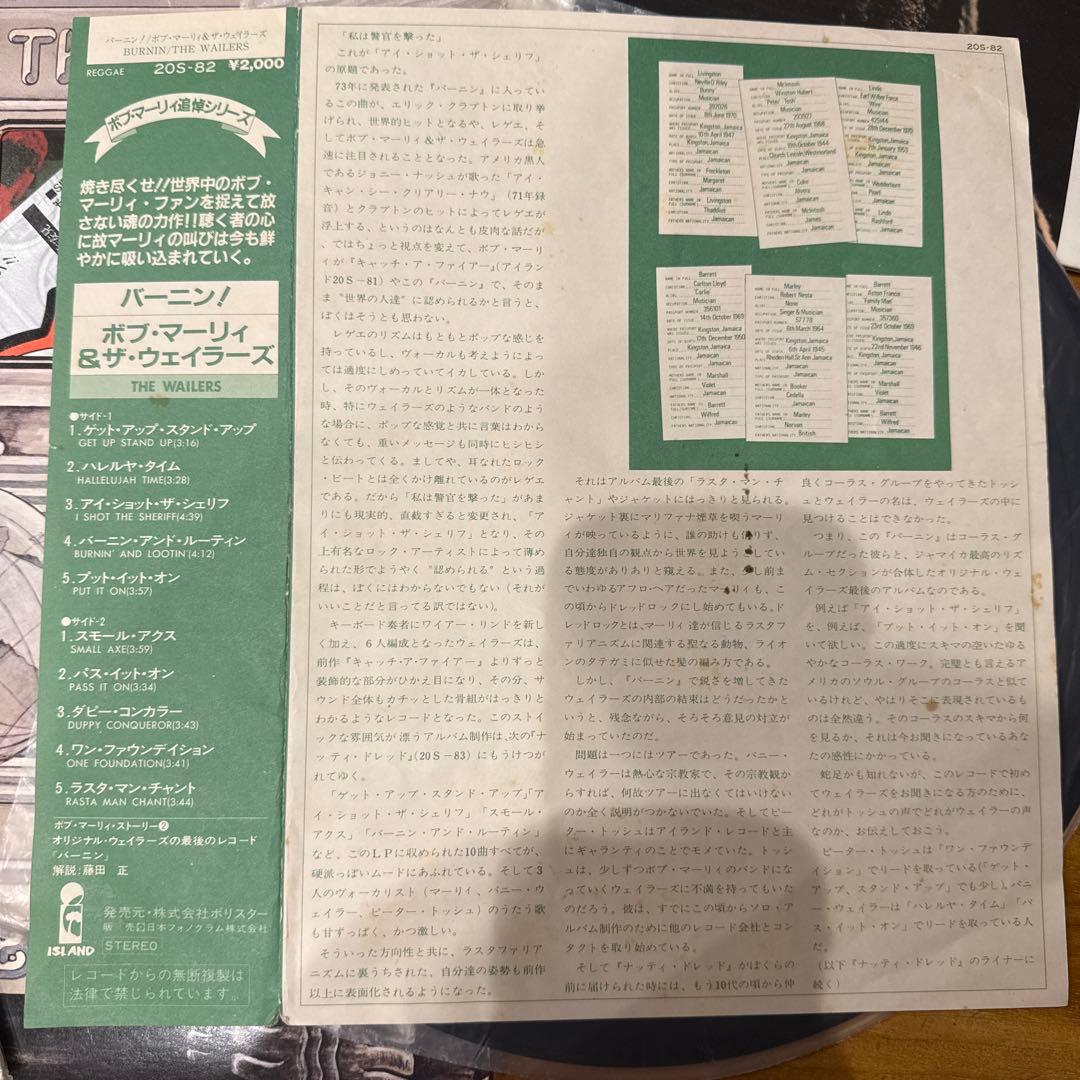 バーニン!/ボブ・マーリィ&ザ・ウェイラーズ
BURNIN/THE WAILERS
REGGAE 20S-82 ¥2,000
ボブ・マーリィ追悼シリーズ
焼き尽くせ!!世界中のボブ・
マーリィ・ファンを捉えて放
さない魂の力作!!聴く者の心
に故マーリィの叫びは今も鮮
やかに吸い込まれていく。
バーニン!
ボブ・マーリィ
&ザ・ウェイラーズ
THE WAILERS
●サイド-1
1.ゲット・アップ・スタンド・アップ
GET UP STAND UP(3:16)
2.ハレルヤ・タイム
HALLELUJAH TIME(3:28)
3.アイ・ショット・ザ・シェリフ
I SHOT THE SHERIFF(4:39)
4.バーニン・アンド・ルーティン
BURNIN' AND LOOTIN'(4:12)
5.プット・イット・オン
PUT IT ON(3:57)
●サイド-2
1.スモール・アクス
SMALL AXE(3:59)
2.パス・イット・オン
PASS IT ON(3:34)
3.ダピー・コンカラー
DUPPY CONQUEROR(3:43)
4.ワン・ファウンデイション
ONE FOUNDATION(3:41)
5.ラスタ・マン・チャント
RASTA MAN CHANT(3:44)
ボブ・マーリィ・ストーリー②
オリジナル・ウェイラーズの最後のレコード
「バーニン」
解説:藤田 正
ISLAND
発売元・株式会社ポリスター
販 売 日本フォノグラム株式会社
STEREO
レコードからの無断複製は
法律で禁じられています。
20S-82
「私は警官を撃った」
これが「アイ・ショット・ザ・シェリフ」
の原題であった。
73年に発表された『バーニン』に入ってい
るこの曲が、エリック・クラプトンに取り挙
げられ、世界的ヒットとなるや、レゲエ、そ
してボブ・マーリィ&ザ・ウェイラーズは急
速に注目されることとなった。アメリカ黒人
であるジョニー・ナッシュが歌った「アイ・
キャン・シー・クリアリー・ナウ」(71年録
音)とクラプトンのヒットによってレゲエが
浮上する、というのはなんとも皮肉な話だが
、ではちょっと視点を変えて、ボブ・マーリ
ィが『キャッチ・ア・ファイアー』(アイラ
ンド20S-81)やこの『バーニン』で、そのま
ま“世界の人達”に認められるかと言うと、
ぼくはそうとも思わない。
レゲエのリズムはもともとポップな感じを
持っているし、ヴォーカルも考えようによっ
ては適度にしめっていてイカしている。しか
し、そのヴォーカルとリズムが一体となった
時、特にウェイラーズのようなバンドのよう
な場合に、ポップな感覚と共に言葉はわから
なくても、重いメッセージも同時にヒシヒシ
と伝わってくる。ましてや、耳なれたロック
・ビートとは全くかけ離れているのがレゲエ
である。だから「私は警官を撃った」があま
りにも現実的、直截すぎると変更され、「ア
イ・ショット・ザ・シェリフ」となり、その
上有名なロック・アーティストによって薄め
られた形でようやく“認められる”という過
程は、ぼくにはわからないでもない(それが
いいことだと言ってる訳ではない)。
キーボード奏者にワイアー・リンドを新し
く加え、6人編成となったウェイラーズは、
前作『キャッチ・ア・ファイアー』よりずっと
装飾的な部分がひかえ目になり、その分、サ
ウンド全体もカチッとした骨組がはっきりと
わかるようなレコードとなった。このストイ
ックな雰囲気が漂うアルバム制作は、次の『ナ
ッティ・ドレッド』(20S-83)にもうけつが
れてゆく。
「ゲット・アップ・スタンド・アップ」「ア
イ・ショット・ザ・シェリフ」「スモール・
アクス」「バーニン・アンド・ルーティン」
など、このLPに収められた10曲すべてが、
硬派っぽいムードにあふれている。そして3
人のヴォーカリスト(マーリィ、バニー・ウ
ェイラー、ピーター・トッシュ)のうたう歌
も甘ずっぱく、かつ激しい。
そういった方向性と共に、ラスタファリア
ニズムに裏うちされた、自分達の姿勢も前作
以上に表面化されるようになった。
Livingston
Neville O'Riley
'Bunny'
Musician
392026
8th June 1970
Kingston, Jamaica
10th April 1947
Kingston, Jamaica
Jamaican
Freckleton
Margaret
Jamaican
Livingston
Thaddius
Jamaican
McIntosh
Winston Hubert
'Peter' 'Tosh'
Musician
27th August 1968
Kingston, Jamaica
19th October 1944
Jamaican
Coke
Alvera
Jamaican
McIntosh
James
Jamaican
Lindo
Earl Wilber Force
'Wire'
Musician
425144
28th December 1970
Kingston, Jamaica
7th January 1953
Kingston, Jamaica
Jamaican
Wedderburn
Pearl
Jamaican
Lindo
Rashford
Jamaican
Barrett
Carlton Lloyd
'Carlie'
Musician
356101
14th October 1969
Kingston, Jamaica
17th December 1950
Kingston, Jamaica
Jamaican
Marshall
Violet
Jamaican
Barrett
Wilfred
Jamaican
Marley
Robert Nesta
None
Singer & Musician
57778
6th March 1964
Kingston, Jamaica
6th April 1945
Rhoden Hall, St Ann Jamaica
Jamaican
Booker
Cedella
Jamaican
Marley
Norvan
British
Barrett
Aston Francis
'Family Man'
Musician
357360
23rd October 1969
Kingston, Jamaica
22nd November 1946
Kingston, Jamaica
Jamaican
Marshall
Violet
Jamaican
Barrett
Wilfred
Jamaican
それはアルバム最後の「ラスタ・マン・チ
ャント」やジャケットにはっきりと見られる。
ジャケット裏にマリファナ煙草を喫うマーリ
ィが映っているように、誰の助けも借りず、
自分達独自の観点から世界を見ようとしてい
る態度がありありと窺える。また、少し前ま
でいわゆるアフロ・ヘアだったマーリィも、こ
の頃からドレッドロックにし始めてもいる。ド
レッドロックとは、マーリィ達が信じるラスタフ
ァリアニズムに関連する聖なる動物、ライオ
ンのタテガミに似せた髪の編み方である。
しかし、『バーニン』で鋭さを増してきた
ウェイラーズの内部の結束はどうだったかと
いうと、残念ながら、そろそろ意見の対立が
始まっていたのだ。
問題は一つにはツアーであった。バニー・
ウェイラーは熱心な宗教家で、その宗教観か
らすれば、何故ツアーに出なくてはいけない
のか全く説明がつかないでいた。そしてピー
ター・トッシュはアイランド・レコードと主
にギャランティのことでモメていた。トッシ
ュは、少しずつボブ・マーリィのバンドにな
っていくウェイラーズに不満を持ってもいた
のだろう。彼は、すでにこの頃からソロ・ア
ルバム制作のために他のレコード会社とコン
タクトを取り始めている。
そして『ナッティ・ドレッド』がぼくらの
前に届けられた時には、もう10代の頃から仲
良くコーラス・グループをやってきたトッシ
ュとウェイラーの名は、ウェイラーズの中に
見つけることはできなかった。
つまり、この『バーニン』はコーラス・グ
ループだった彼らと、ジャマイカ最高のリズ
ム・セクションが合体したオリジナル・ウェ
イラーズ最後のアルバムなのである。
例えば「アイ・ショット・ザ・シェリフ」
を、例えば、「プット・イット・オン」を聞
いて欲しい。この適度にスキマの空いたゆる
やかなコーラス・ワーク。完璧とも言えるア
メリカのソウル・グループのコーラスと似て
いるけれど、やはりそこに表現されているも
のは全然違う。そのコーラスのスキマから何
を見るか、それは今お聞きになっているあな
たの感性にかかっている。
蛇足かも知れないが、このレコードで初め
てウェイラーズをお聞きになる方のために、
どれがトッシュの声でどれがウェイラーの声
なのか、お伝えしておこう。
ピーター・トッシュは「ワン・ファウンデ
イション」でリードを取っている(「ゲット・
アップ、スタンド・アップ」でも少し)。バニ
ー・ウェイラーは「ハレルヤ・タイム」「パ
ス・イット・オン」でリードを取っている人
だ。
(以下『ナッティ・ドレッド』のライナーに
続く)